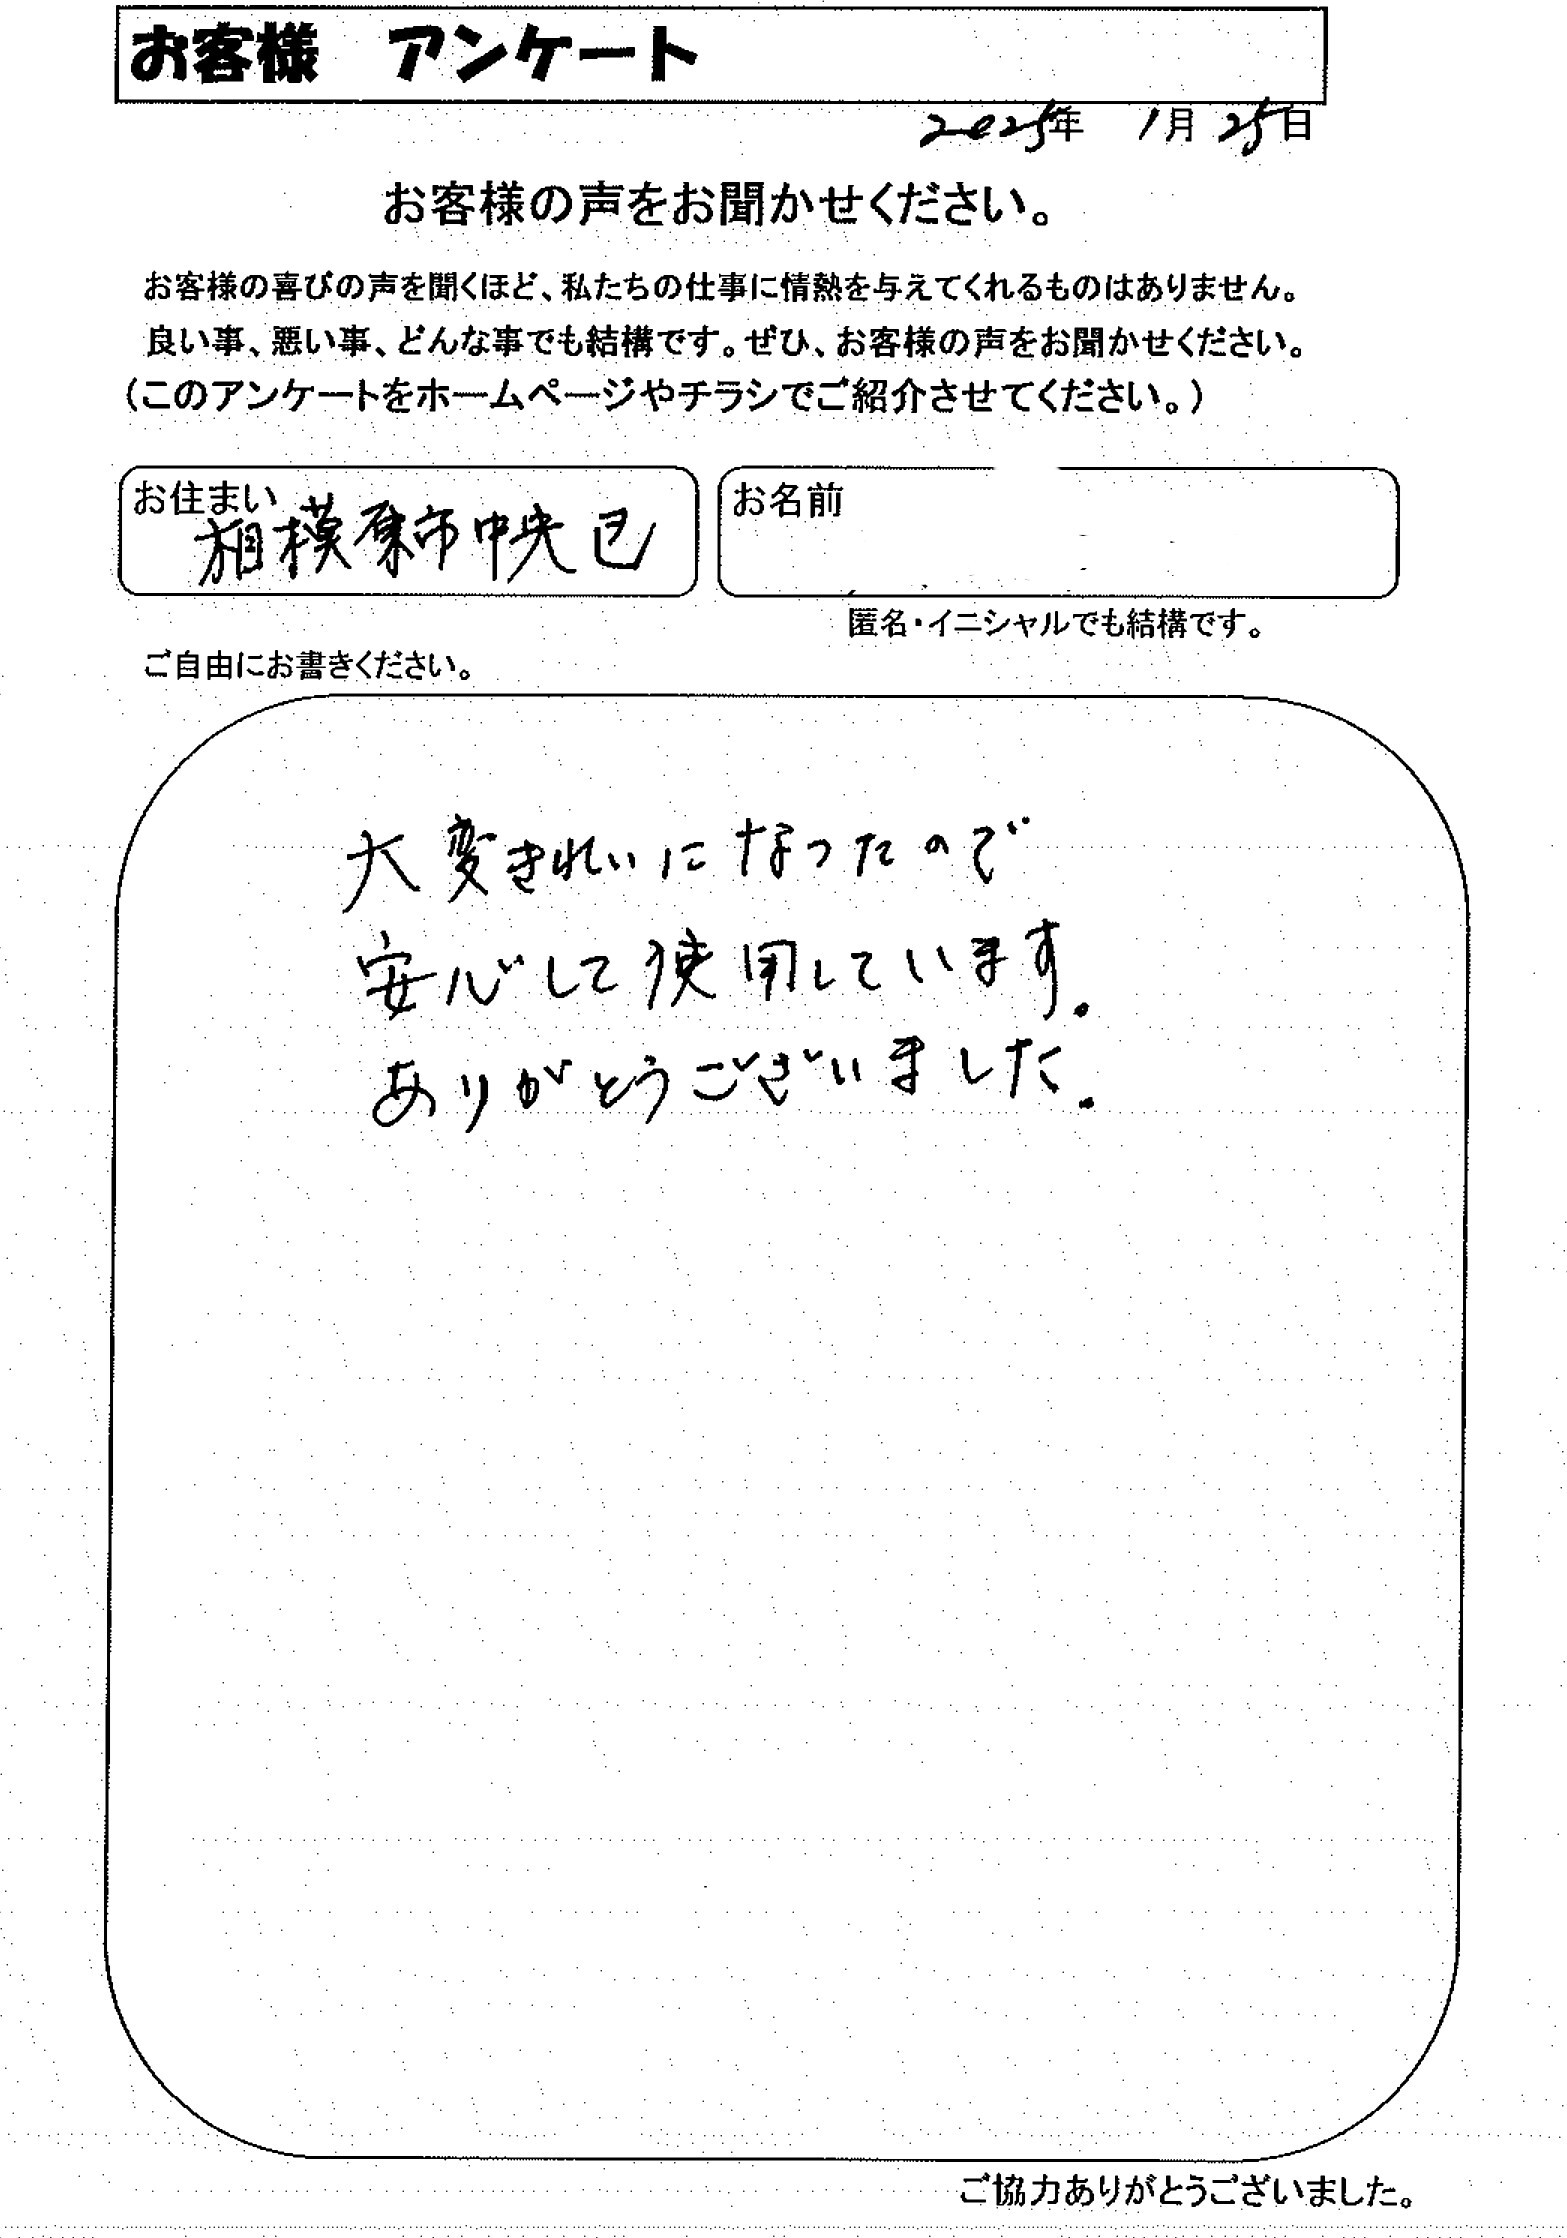 お客様 アンケート
2025年 1月25日
お客様の声をお聞かせください。
お客様の喜びの声を聞くほど、私たちの仕事に情熱を与えてくれるものはありません。
良い事、悪い事、どんな事でも結構です。ぜひ、お客様の声をお聞かせください。
(このアンケートをホームページやチラシでご紹介させてください。)
お住まい
相模原市中央区
お名前
匿名・イニシャルでも結構です。
ご自由にお書きください。
大変きれいになったので
安心して使用しています。
ありがとうございました。
ご協力ありがとうございました。